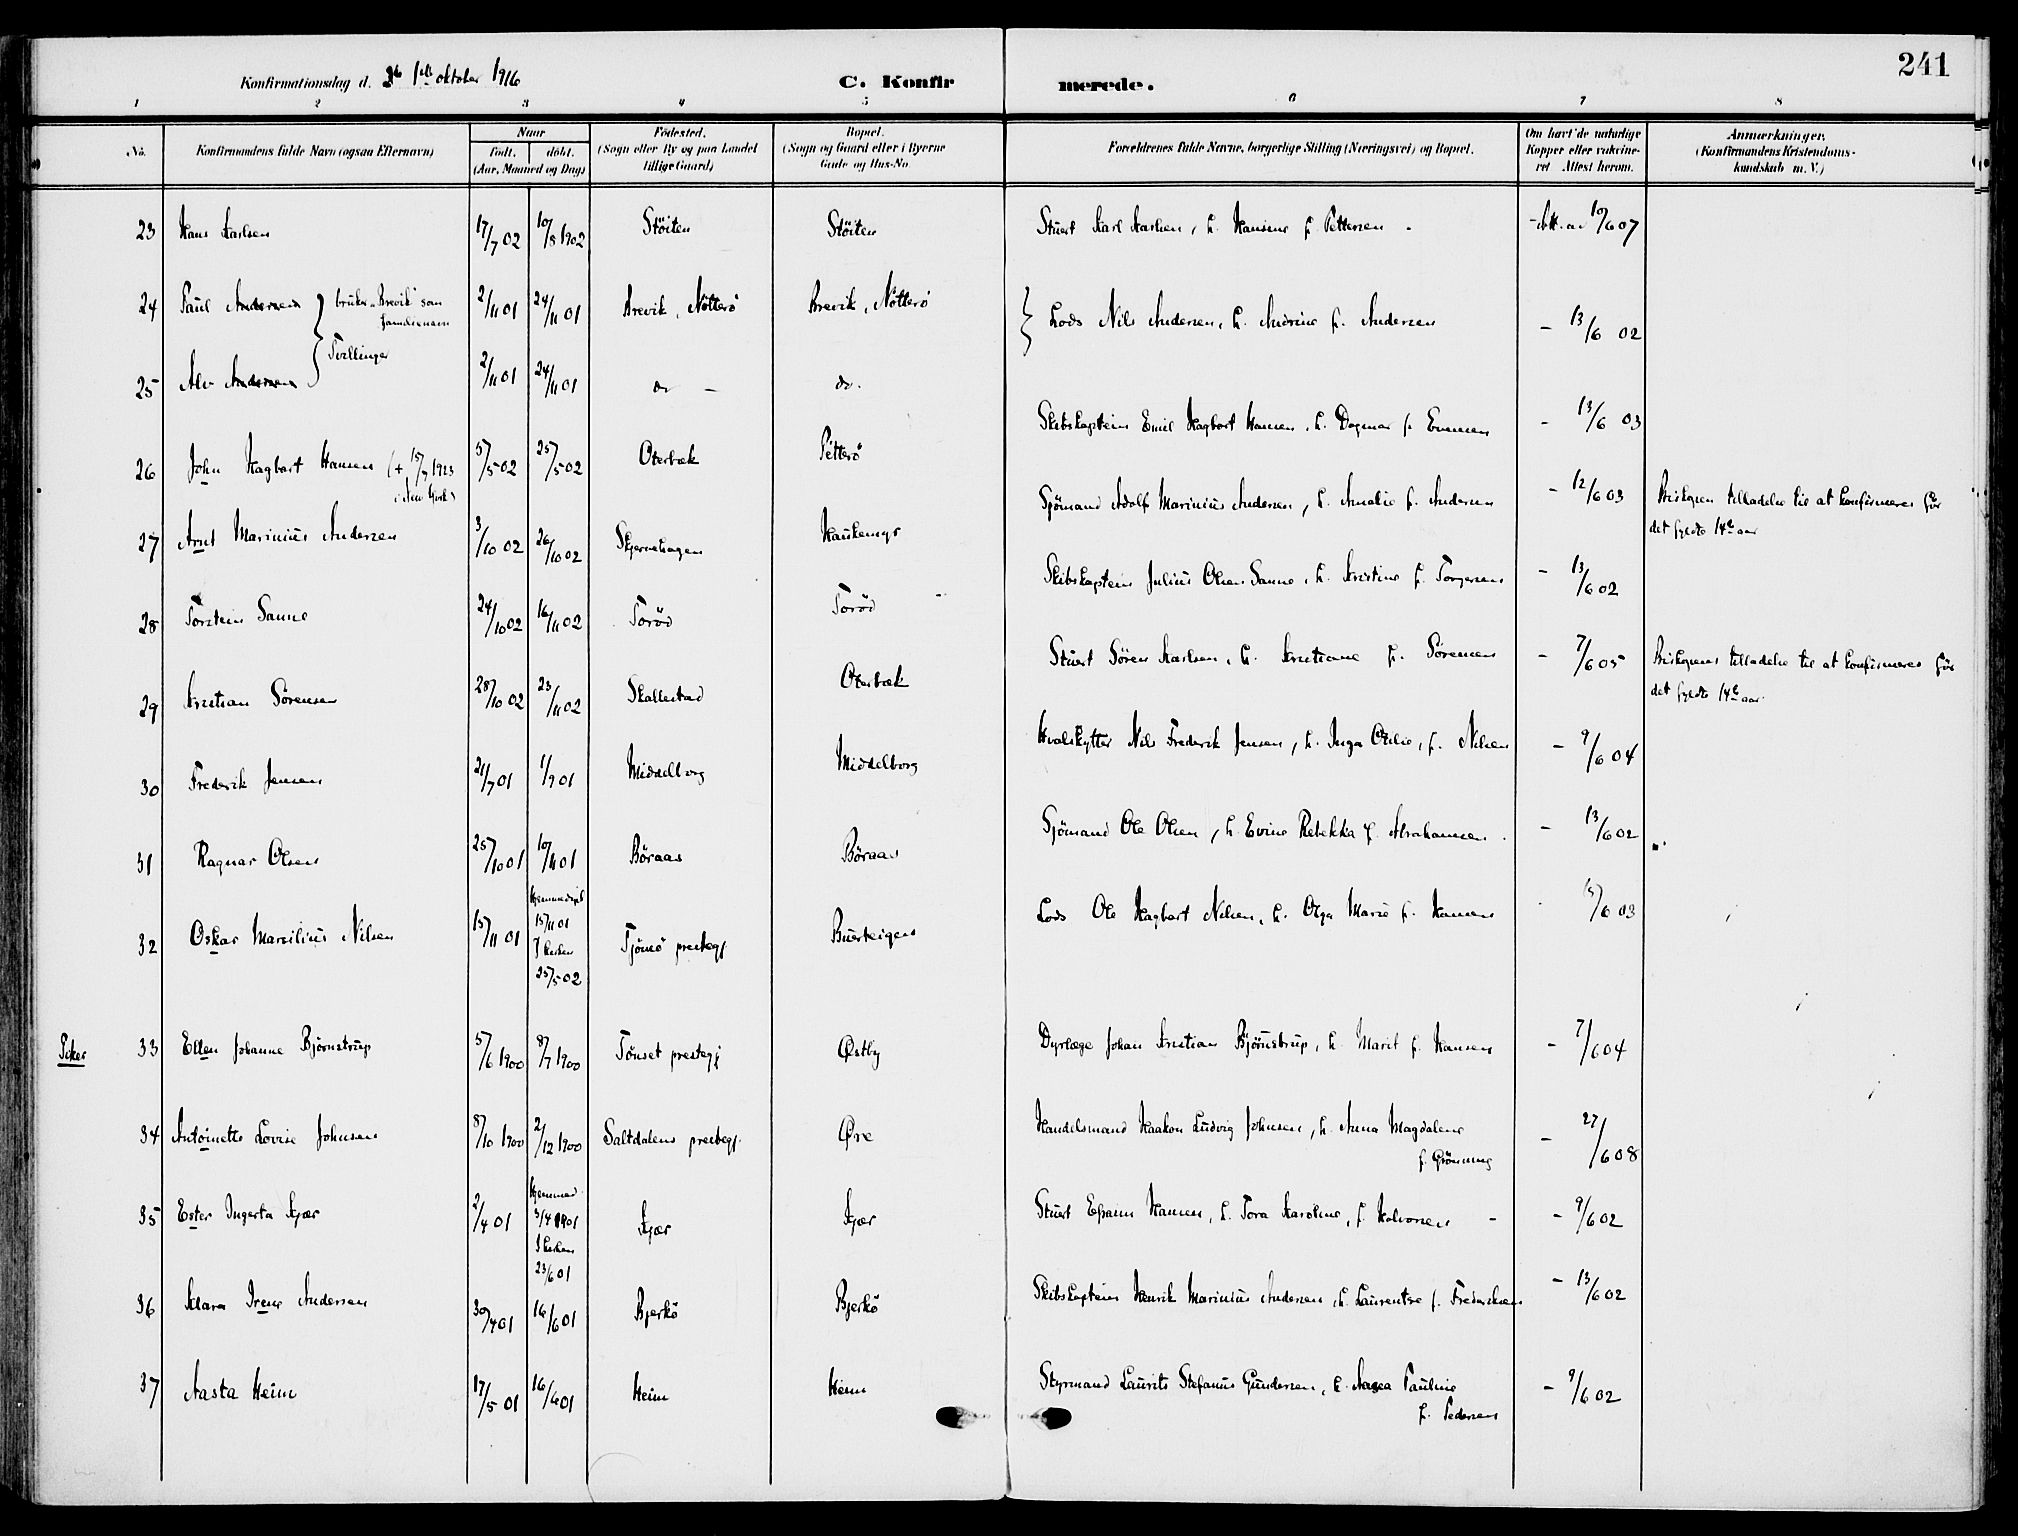 241
Konfirmationsdag d. 1ste oktober 1916 C. Konfirmerede.
1 2 3 4 5 6 7 8
No. Konfirmandens fulde Navn (ogsaa Efternavn) Naar født. døbt. (Aar, Maaned og Dag) Fødested. (Sogn eller By og paa Landet tillige Gaard) Bopæl. (Sogn og Gaard eller i Byerne Gade og Hus-No Forældrenes fulde Navne, borgerlige Stilling (Næringsvei) og Bopæl. Om havt de naturlige Kopper eller vakcineret Attest herom. Anmærkninger. (Konfirmandens Kristendomskundskab m. V.)
23 Hans Karlsen 17/7 02 10/8 1902 Stöiten Stöiten Stuert Karl Karlsen, h. Hansine f. Pettersen - Att. av 19/6 07
24 Paul Andersen bruker "Brevik" som familienavn 2/11 01 24/11 01 Brevik, Nötterö Brevik, Nötterö Lods Nils Andersen, h. Andrine f. Andersen - 13/6 02
Tvillinger
25 Alv Andersen 2/11 01 24/11 01 do - do.
26 John Hagbart Hansen (+ 15/7 1923 i New York) 5/5 02 25/5 02 Oterbæk Petterö Skibskaptein Emil Hagbart Hansen, h. Dagmar f. Evensen - 13/6 03
27 Arnt Marinius Andersen 3/10 02 26/10 02 Skjervehagen Haukemyr Sjömand Adolf Marinius Andersen, h. Amalie f. Andersen - 12/6 03 Biskopens tilladelse til at konfirmeres för det fyldte 14de aar
28 Torstein Sanne 24/10 02 16/11 02 Toröd Toröd Skibskaptein Julius Olsen Sanne, h. Kristine f. Torgersen - 13/6 02
29 Kristian Sörensen 28/10 02 23/11 02 Skallestad Oterbæk Stuert Sören Karlsen, h. Kristiane f. Sörensen - 7/6 05 Biskopens tilladelse til at konfirmeres för det fyldte 14de aar.
30 Frederik Jensen 21/7 01 1/9 01 Middelborg Middelborg Hvalskytter Nils Frederik Jensen, h. Inga Otilie, f. Nilsen - 9/6 04
31 Ragnar Olsen 25/10 01 10/11 01 Böraas Böraas Sjömand Ole Olsen, h. Evine Rebekka f. Abrahamsen - 13/6 02
32 Oskar Marsilius Nilsen 15/11 01 Hjemmedøpt 15/11 01 I kirken 25/5 02 Tjömö prestegj. Buerteigen Lods Ole Hagbart Nilsen, h. Olga Marie f. Hansen 15/6 03
Piker 33 Ellen Johanne Bjørnstrup 5/6 1900 8/7 1900 Tönset prestegj Østby Dyrlæge Johan Kristian Bjørnstrup, h. Marit f. Hansen - 7/6 04
34 Antoinette Lovise Johnsen 8/10 1900 2/12 1900 Saltdalens prestegj. Øre Handelsmand Haakon Ludvig Johnsen, h. Anna Magdalene f. Grönning - 27/6 08
35 Ester Ingerta Kjær 2/4 01 Hjemmed. 3/4 1901 I kirken 23/6 01 Kjær Kjær Stuert Efraim Hansen, h. Tora Karoline, f. Halvorsen - 9/6 02
36 Klara Irene Andersen 30/4 01 16/6 01 Bjerkö Bjerkö Skibskaptein Henrik Marinius Andersen, h. Laurentse f. Frederiksen - 13/6 02
37 Aasta Heim 17/5 01 16/6 01 Heim Heim Styrmand Laurits Stefanus Gundersen, h. Aasea Pauline f. Pedersen - 9/6 02